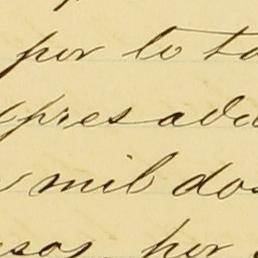 por lo ta
presada
mil dos
sos por